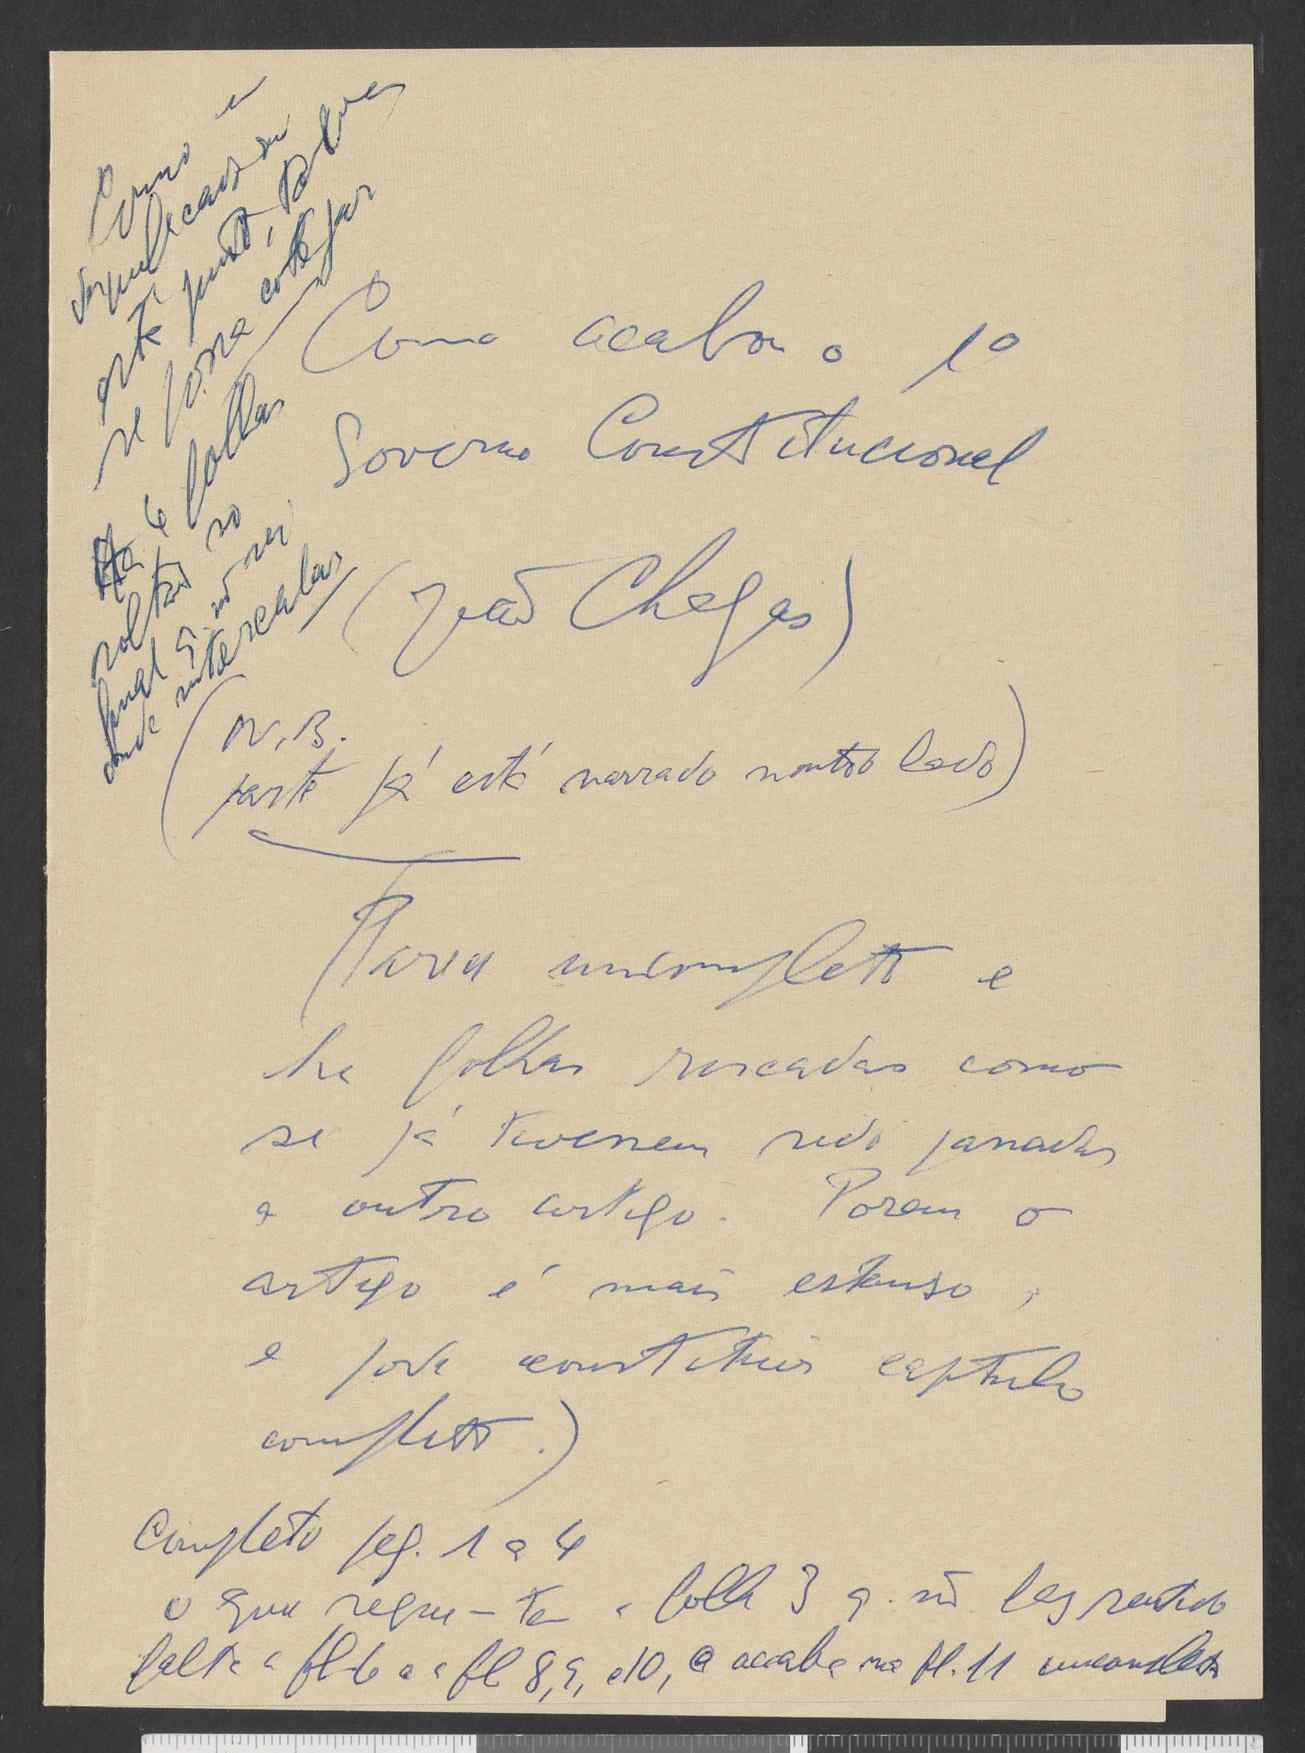 Como o
duplicado
está junto, talvez
se possa cotejar
Ha 4 folhas
soltas no
final q. não sei
onde intercalar
Como acabou o 1º
Governo Constitucional
(João Chagas)
(N.B.
parte já está narrado noutro lado)
(Parece incompleto e
ha folhas riscadas como
se já tivessem sido passadas
a outro artigo. Porem o
artigo é mais extenso,
e pode constituir capitulo
completo.)
Completo pag. 1 a 4
o que segue-tem a folha 3 q. não faz sentido
falta a fl-6 e a fl 8, 9, e 10, e acaba na fl. 11 incompleto